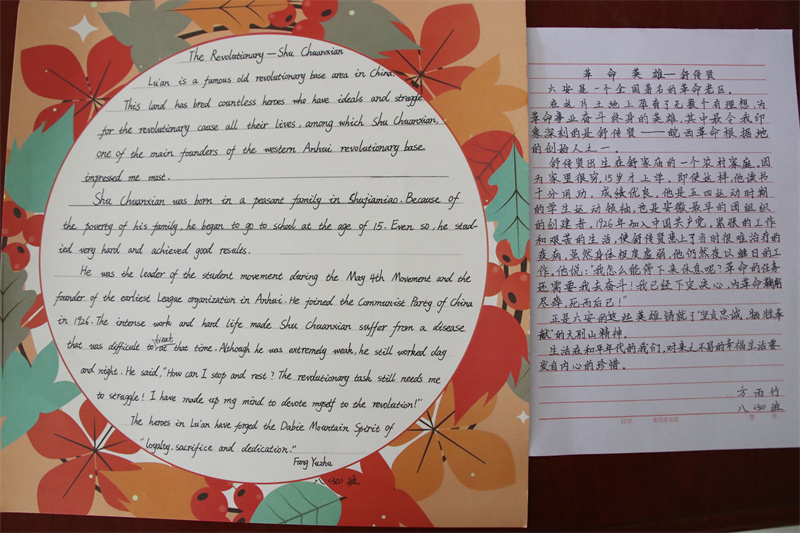 The Revolutionary — Shu Chuanxian
Lu'an is a famous old revolutionary base area in China.
This land has bred countless heroes who have ideals and struggle
for the revolutionary cause all their lives, among which Shu Chuanxian,
one of the main founders of the western Anhui revolutionary base
impressed me most.
Shu Chuanxian was born in a peasant family in Shujiamiao. Because of
the poverty of his family, he began to go to school at the age of 15. Even so, he stud-
ied very hard and achieved good results.
He was the leader of the student movement during the May 4th Movement and the
founder of the earliest League organization in Anhui. He joined the Communist Party of China
in 1926. The intense work and hard life made Shu Chuanxian suffer from a disease
that was difficule to treat at that time. Although he was extremely weak, he still worked day
and night. He said, "How can I stop and rest? The revolutionary task still needs me
to struggle! I have made up my mind to devote myself to the revolution!"
The heroes in Lu'an have forged the Dabie Mountain Spirit of
"loyalty, sacrifice and dedication."
Fang Yuzhu
八(30)班
革命英雄—舒传贤
六安是一个全国著名的革命老区。
在这片土地上孕育了无数个有理想、为
革命事业奋斗终身的英雄,其中最令我印
象深刻的是舒传贤——皖西革命根据地
的创始人之一。
舒传贤出生在舒家庙的一个农村家庭。因
为家里很穷,15岁才上学。即使这样,他读书
十分用功,成绩优良。他是五四运动时刻
的学生运动领袖,也是安徽最早的团组织
的创建者。1926年加入中国共产党。紧张的工作
和艰苦的生活,使舒传贤患上了当时很难治疗的
疾病,虽然身体极度虚弱,他仍然夜以继日的工
作,他说:"我怎么能停下来休息呢?革命的任务
还需要我去奋斗!我已经下定决心,为革命鞠躬
尽瘁,死而后已!"
正是六安的这些英雄铸就了"坚贞忠诚、牺牲奉
献"的大别山精神。
生活在和平年代的我们,对来之不易的幸福生活要
发自内心的珍惜。
方雨竹
八(30)班